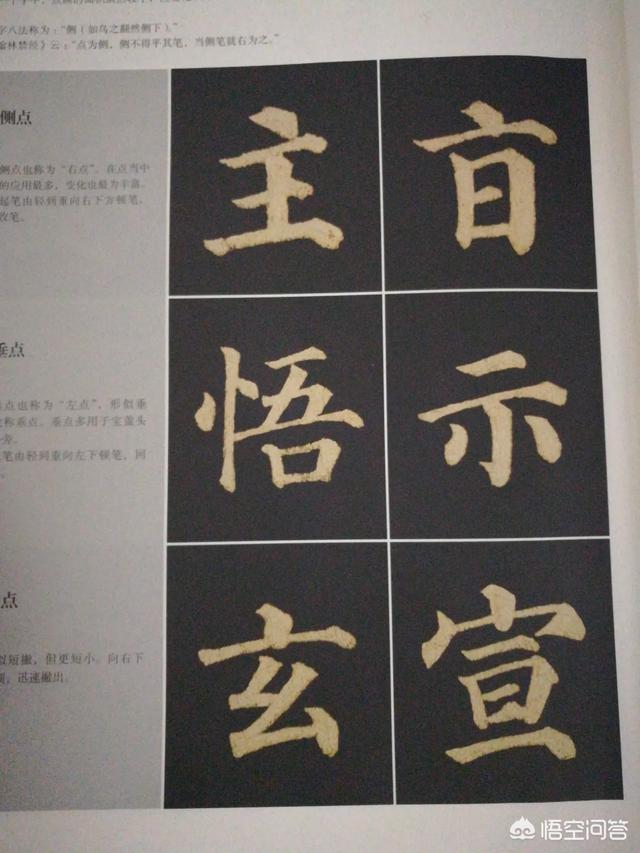 字八法称为：“侧（如鸟之翻然侧下）。”
林禁经》云：“点为侧，侧不得平其笔，当侧笔就右为之。”
侧点
侧点也称为“右点”，在点当中
的应用最多，变化也最为丰富。
起笔由轻到重向右下方顿笔，
收笔。
主
垂点
点也称为“左点”，形似垂
称垂点。垂点多用于宝盖头
旁。
笔由轻到重向左下顿笔，回
悟 示
点
似短撇，但更短小。向右下
顿，迅速撇出。
玄 宣
悟空问答